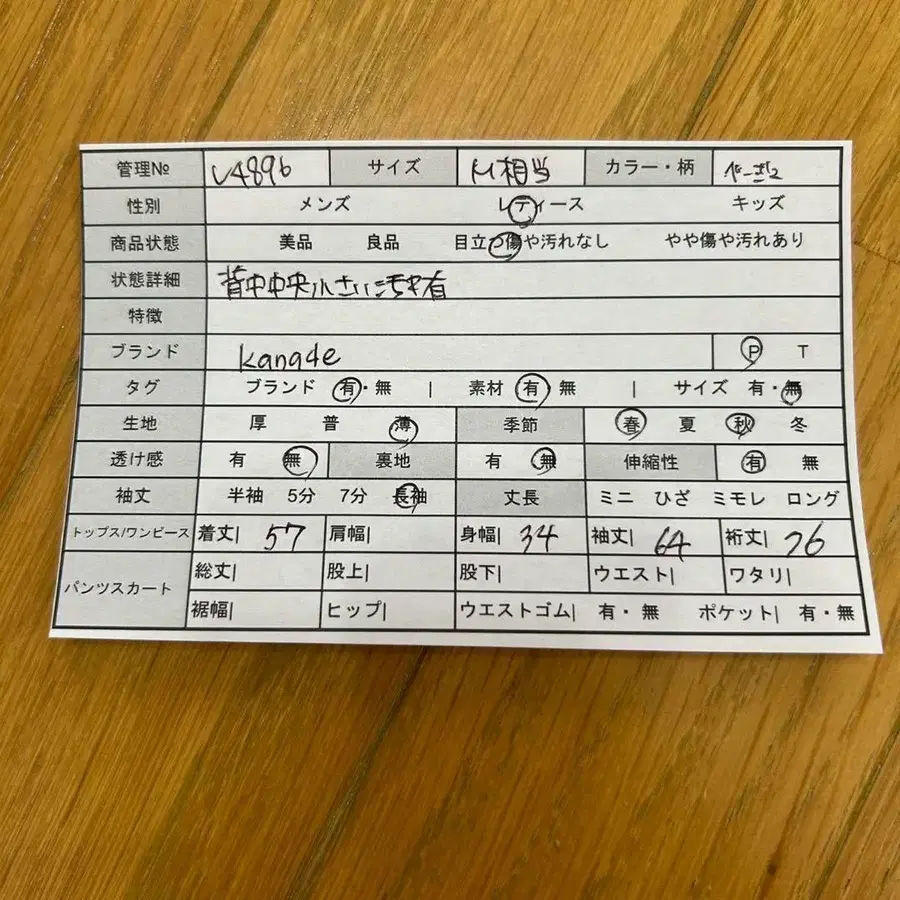 管理№ V4896 サイズ M相当 カラー・柄 ベージュ
性別 メンズ レディース キッズ
商品状態 美品 良品 目立つ傷や汚れなし やや傷や汚れあり
状態詳細 背中中央小さい汚れ有
特徴
ブランド kangde P T
タグ ブランド 有・無 | 素材 有 無 | サイズ 有・無
生地 厚 普 薄 季節 春 夏 秋 冬
透け感 有 無 裏地 有 無 伸縮性 有 無
袖丈 半袖 5分 7分 長袖 丈長 ミニ ひざ ミモレ ロング
トップス/ワンピース 着丈| 57 肩幅| 身幅| 34 袖丈| 64 裄丈| 76
パンツスカート 総丈| 股上| 股下| ウエスト| ワタリ|
裾幅| ヒップ| ウエストゴム| 有・無 ポケット| 有・無